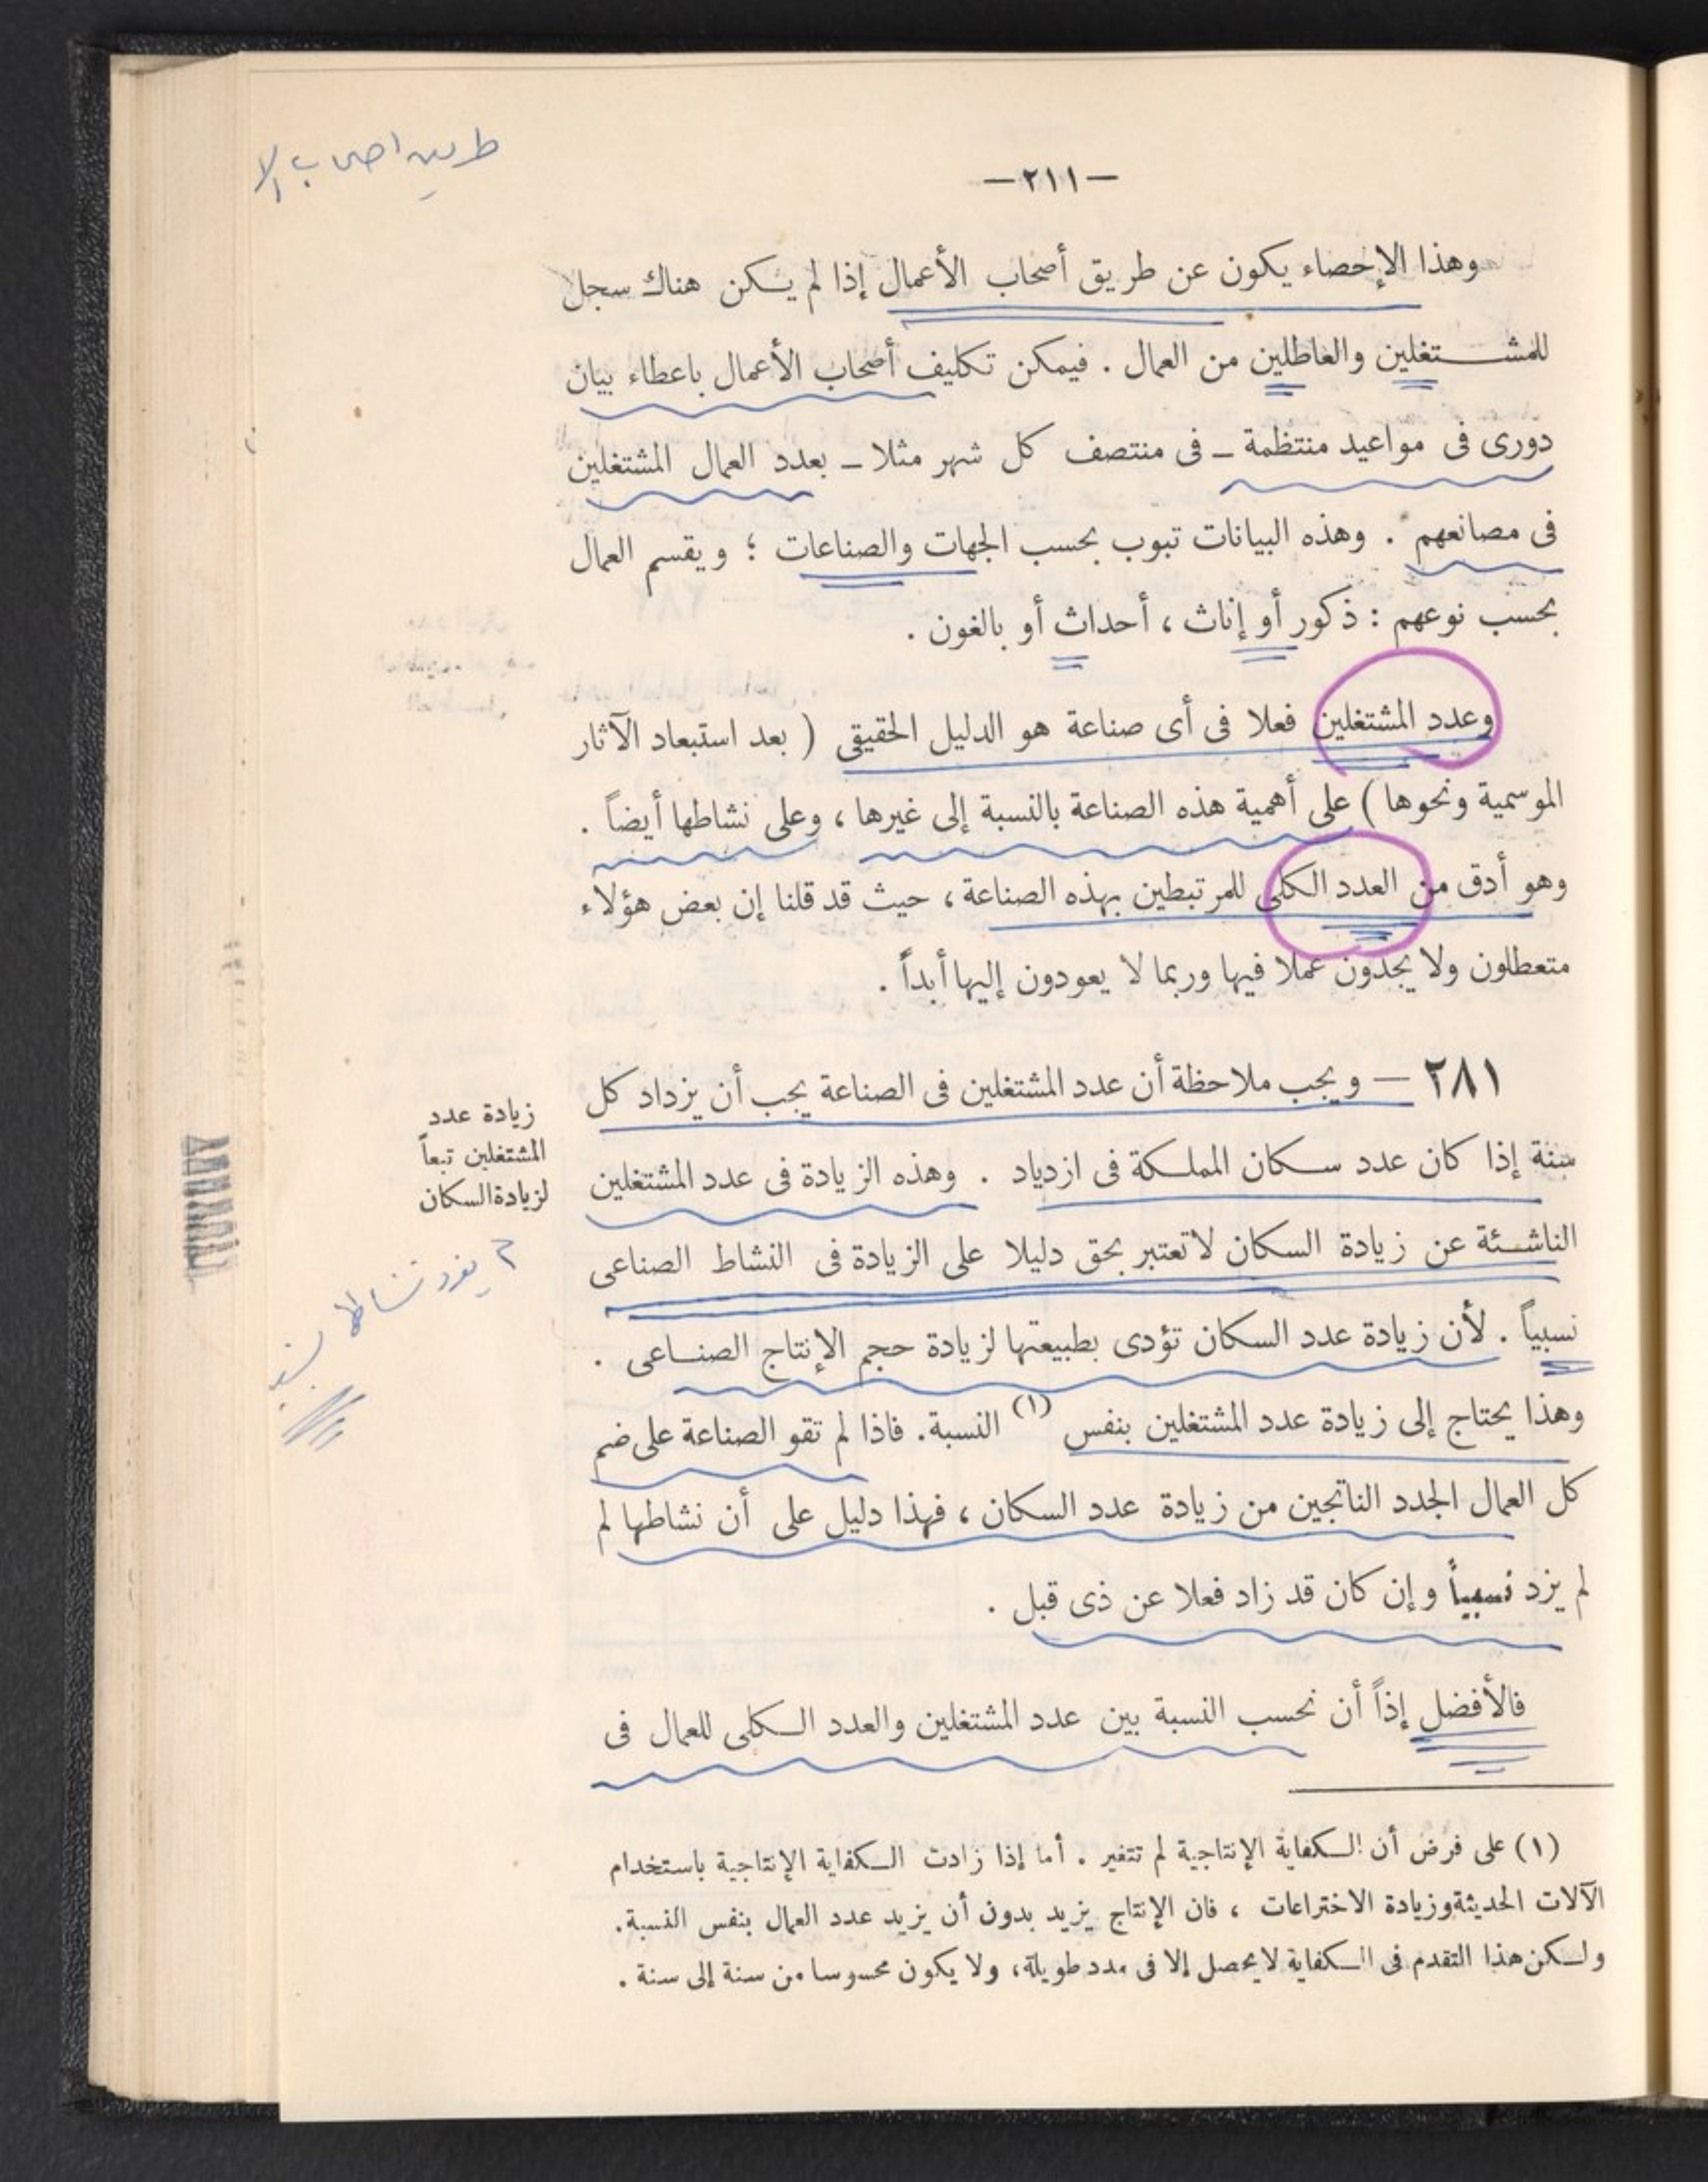 طريق اصحاب الا
—٢١١—
وهذا الإحصاء يكون عن طريق أصحاب الأعمال إذا لم يكن هناك سجل
للمشتغلين والعاطلين من العمال . فيمكن تكليف أصحاب الأعمال باعطاء بيان
دورى فى مواعيد منتظمة – فى منتصف كل شهر مثلا – بعدد العمال المشتغلين
فى مصانعهم . وهذه البيانات تبوب بحسب الجهات والصناعات ؛ ويقسم العمال
بحسب نوعهم : ذكور أو إناث ، أحداث أو بالغون .
وعدد المشتغلين فعلا فى أى صناعة هو الدليل الحقيقى ( بعد استبعاد الآثار
الموسمية ونحوها ) على أهمية هذه الصناعة بالنسبة إلى غيرها ، وعلى نشاطها أيضاً .
وهو أدق من العدد الكلى للمرتبطين بهذه الصناعة ، حيث قد قلنا إن بعض هؤلاء
متعطلون ولا يجدون عملا فيها وربما لا يعودون إليها أبداً .
٢٨١ — ويجب ملاحظة أن عدد المشتغلين فى الصناعة يجب أن يزداد كل
زيادة عدد
المشتغلين تبعاً
لزيادة السكان
سنة إذا كان عدد سكان المملكة فى ازدياد . وهذه الزيادة فى عدد المشتغلين
الناشئة عن زيادة السكان لا تعتبر بحق دليلا على الزيادة فى النشاط الصناعى
نسبياً . لأن زيادة عدد السكان تؤدى بطبيعتها لزيادة حجم الإنتاج الصناعى .
وهذا يحتاج إلى زيادة عدد المشتغلين بنفس (١) النسبة . فاذا لم تقو الصناعة على ضم
كل العمال الجدد الناتجين من زيادة عدد السكان ، فهذا دليل على أن نشاطها لم
لم يزد نسبياً وإن كان قد زاد فعلا عن ذى قبل .
فالأفضل إذاً أن نحسب النسبة بين عدد المشتغلين والعدد الكلى للعمال فى
(١) على فرض أن الكفاية الإنتاجية لم تتغير . أما إذا زادت الكفاية الإنتاجية باستخدام
الآلات الحديثة وزيادة الاختراعات ، فان الإنتاج يزيد بدون أن يزيد عدد العمال بنفس النسبة .
ولكن هذا التقدم فى الكفاية لا يحصل إلا فى مدد طويلة ، ولا يكون محسوسا من سنة إلى سنة .